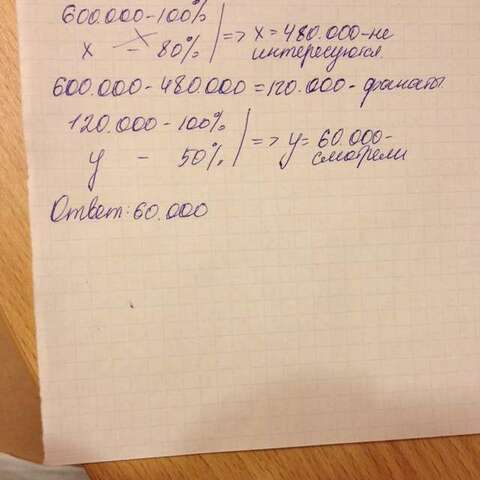 600.000-100% | => x=480.000-не
x - 80% | интересуются.
600.000-480.000=120.000-фанаты.
120.000-100% | => y=60.000-
y - 50% | смотрели
Ответ: 60.000